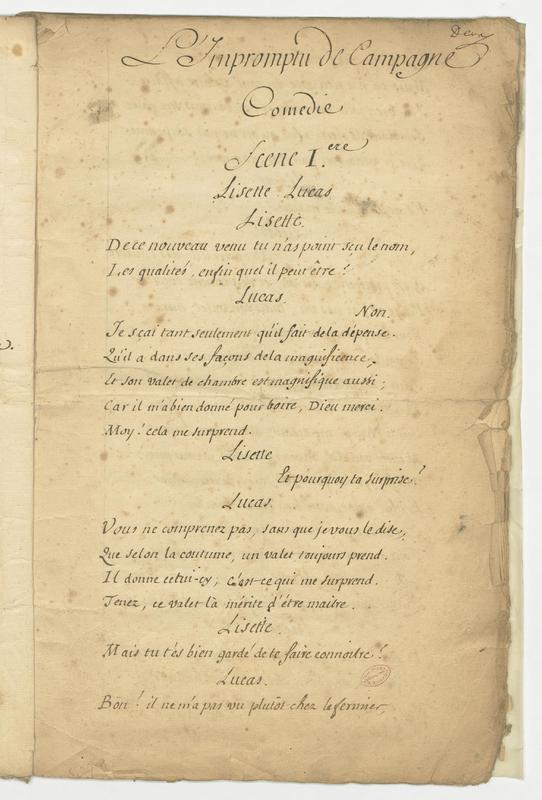 L'Impromptu de Campagne
Comedie
Scene I.ere
Lisette Lucas
Lisette.
De ce nouveau venu tu n'as point sçu le nom,
Les qualités, enfin quel il peut être ?
Lucas.
Non.
Je sçai tant seulement qu'il fait de la dépense.
Qu'il a dans ses façons de la magnificence,
Et son valet de chambre est magnifique aussi ;
Car il m'a bien donné pour boire, Dieu merci.
Moy ! cela me surprend.
Lisette
Et pourquoy ta surprise ?
Lucas.
Vous ne comprenez pas, sans que je vous le dise,
Que selon la coutume, un valet toujours prend.
Il donne celui-cy ; c'est ce qui me surprend.
Tenez, ce valet là mérite d'être maitre.
Lisette.
Mais tu t'és bien gardé de te faire connoitre !
Lucas.
Bon ! il ne m'a pas vu plutôt chez le fermier,